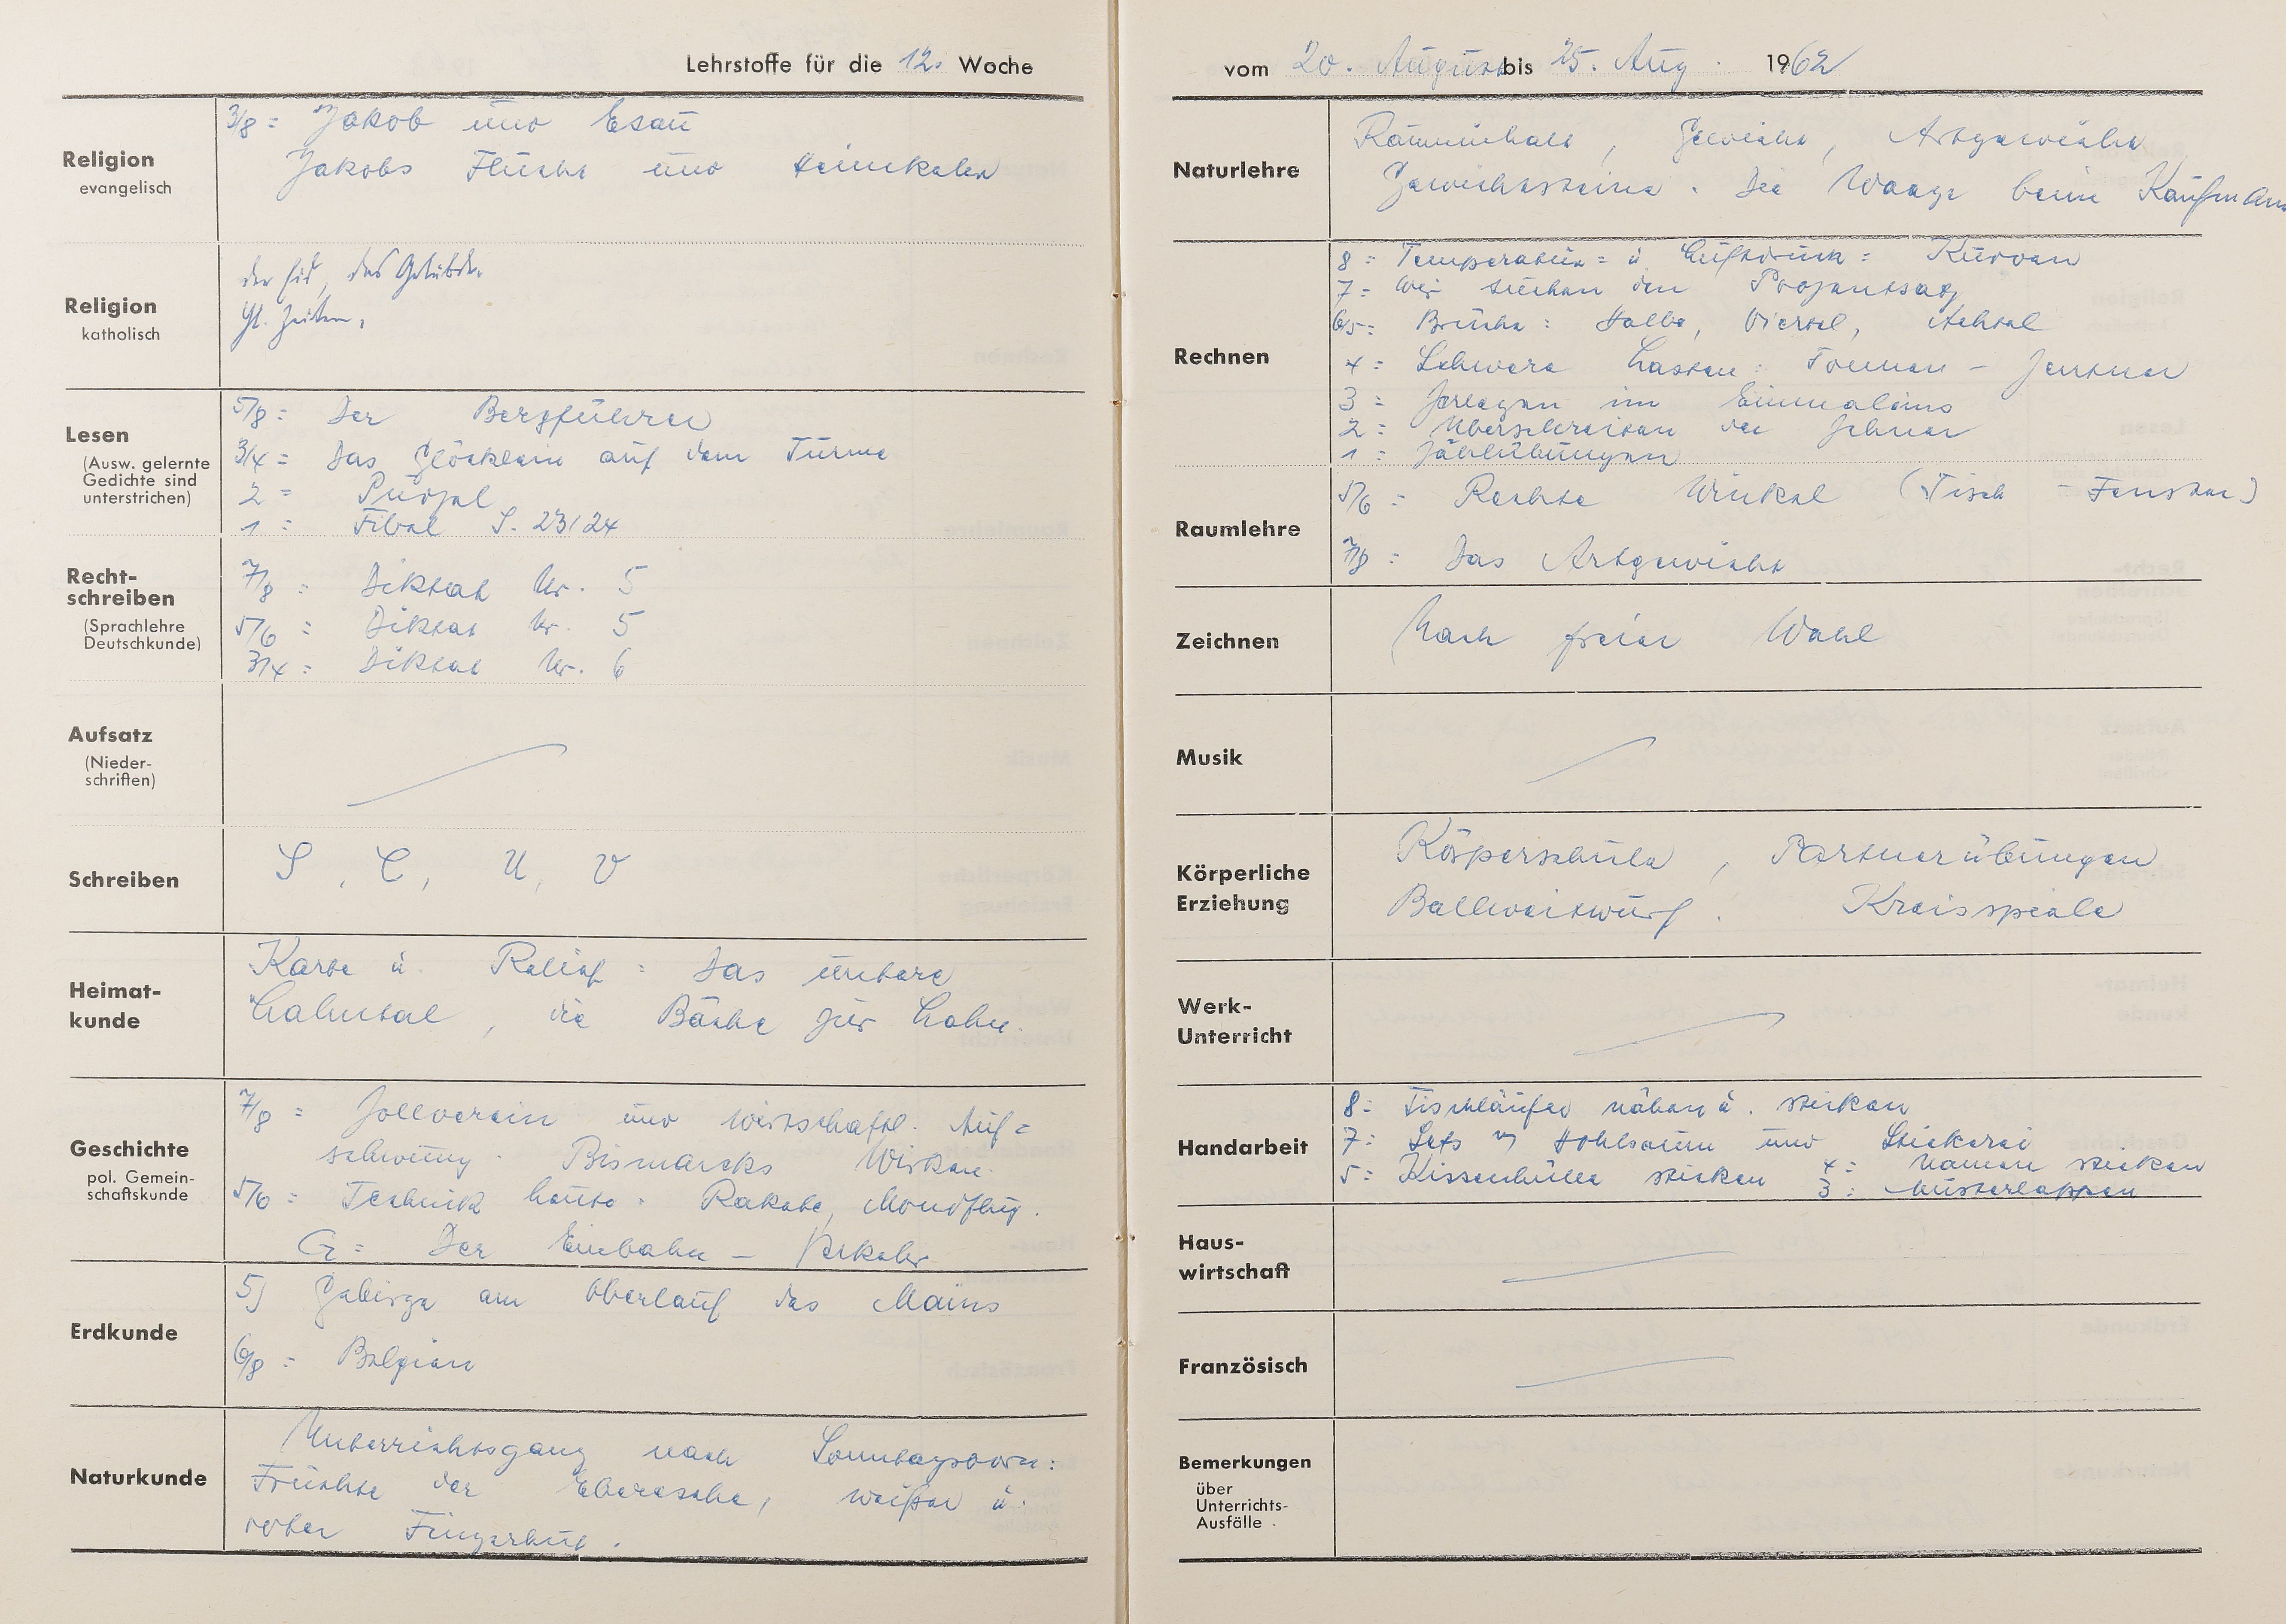 Lehrstoffe für die 12. Woche
Religion
evangelisch
3/8 = Jakob und Esau
Jakobs Flucht und Heimkehr
Religion
katholisch
der Eid, das Gelübde.
Hl. Zeiten.
Lesen
(Ausw. gelernte
Gedichte sind
unterstrichen)
5/8 = Der Bergführer
3/4 = Das Glöcklein auf dem Turme
2 = Purzel
1 = Fibel S. 23/24
Recht-
schreiben
(Sprachlehre
Deutschkunde)
7/8 = Diktat Nr. 5
5/6 = Diktat Nr. 5
3/4 = Diktat Nr. 6
Aufsatz
(Nieder-
schriften)
Schreiben
S, C, U, V
Heimat-
kunde
Karte u. Relief = Das untere
Lahntal, die Bäche zur Lahn.
Geschichte
pol. Gemein-
schaftskunde
7/8 = Zollverein und wirtschaftl. Auf=
schwung. Bismarcks Wirken.
5/6 = Technik heute: Rakete, Mondflug.
G = Der Einbahn – Verkehr
Erdkunde
5) Gebirge am Oberlauf des Mains
6/8 = Belgien
Naturkunde
Unterrichtsgang nach Sonntagsborn:
Früchte der Eberesche, weißer u.
roter Fingerhut.
vom 20. August bis 25. Aug. 1962
Naturlehre
Rauminhalt, Gewicht, Artgewicht
Gewichtssteine. Die Waage beim Kaufmann
Rechnen
8 = Temperatur= u. Luftdruck= Kurven
7 = Wir suchen den Prozentsatz
6/5 = Brüche: Halbe, Viertel, Achtel
4 = Schwere Lasten: Tonnen – Zentner
3 = Zerlegen im Einmaleins
2 = Überschreiten der Zehner
1 = Zählübungen
Raumlehre
5/6 = Rechte Winkel (Tisch – Fenster)
7/8 = Das Artgewicht
Zeichnen
Nach freier Wahl
Musik
Körperliche
Erziehung
Körperschule, Partnerübungen
Ballweitwurf. Kreisspiele
Werk-
Unterricht
Handarbeit
8 = Tischläufer nähen u. sticken
7 = Sets m Hohlsaum und Stickerei
5 = Kissenhülle sticken 4 = Namen sticken
3 = Musterlappen
Haus-
wirtschaft
Französisch
Bemerkungen
über
Unterrichts-
Ausfälle